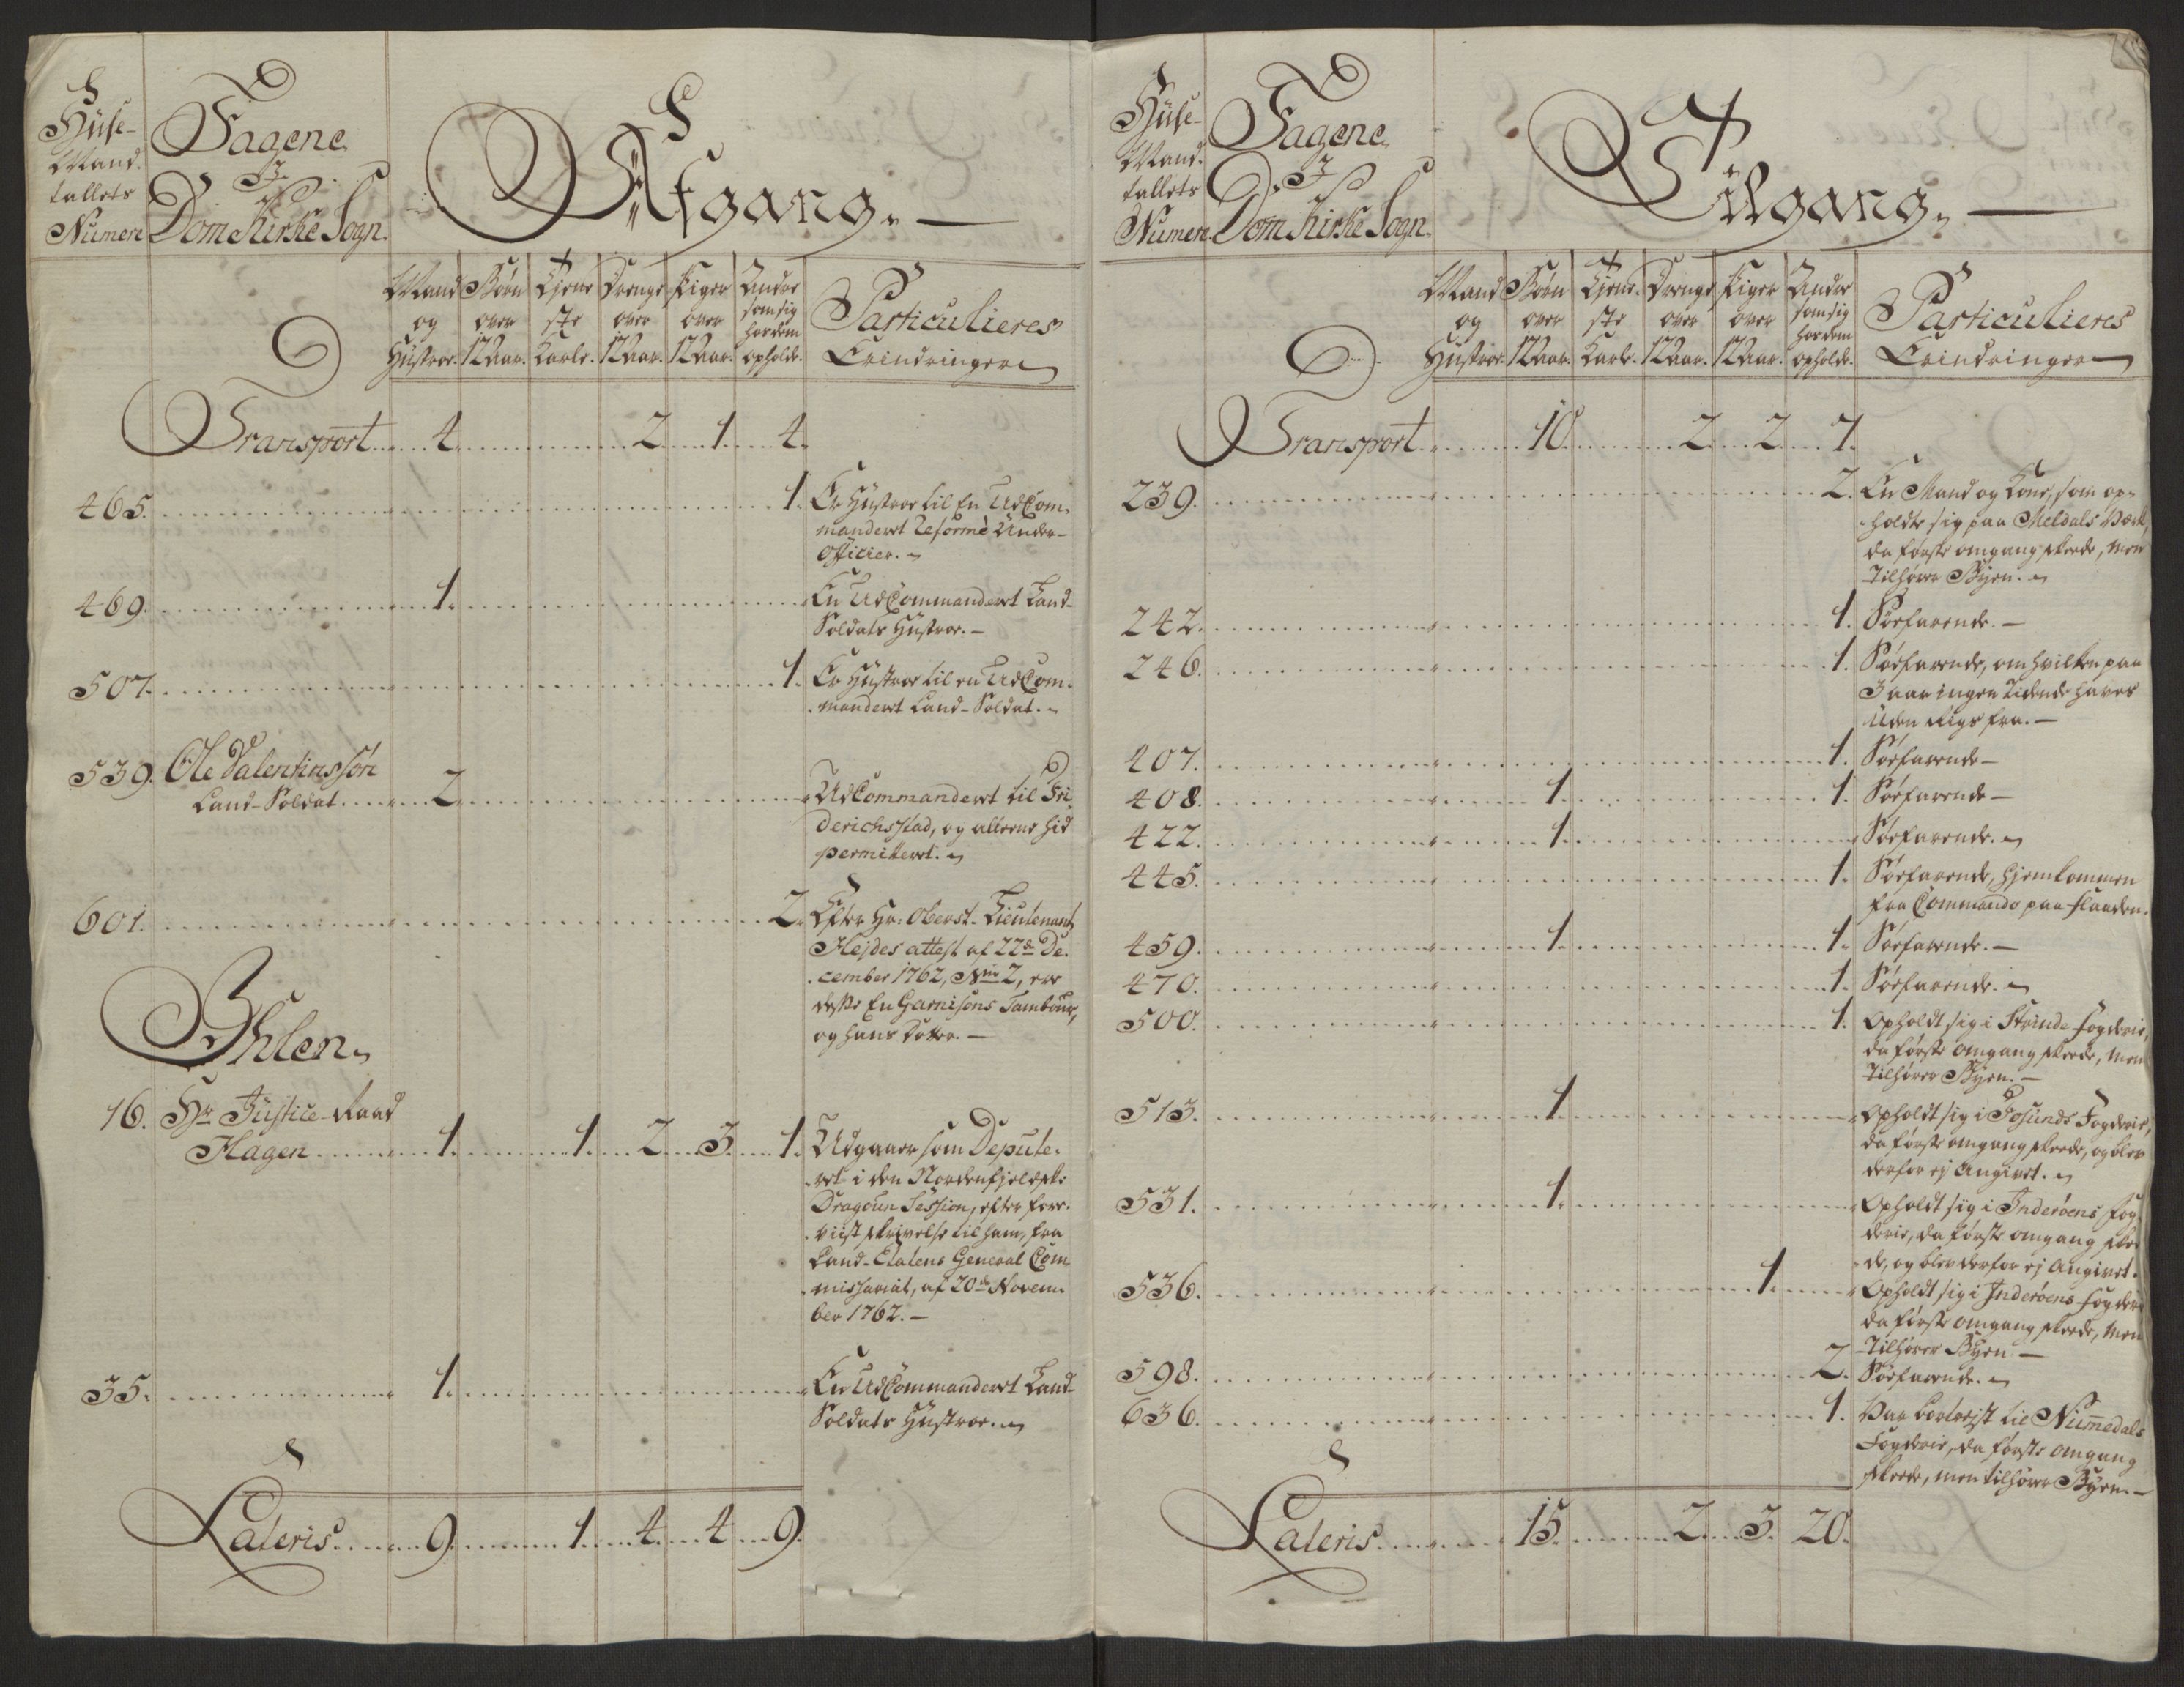 Huse-
Mand-
tallets
Numere
Tagene
I
Dom Kirke Sogn.
Afgang.
Mand og Hustroe.
Børn over 12 Aar.
Tjene ste Karle.
Drenge over 12 Aar.
Piger over 12 Aar.
Andre som sig hos dem opholde.
Particulieres
Erindringer
Transport 4. 2. 1. 4.
465. 1. Er Hustroe til En UdCom-
manderet Reformè Under-
Officier.
469. 1. En UdCommanderet Land-
Soldats Hustroe.
507. 1. Er Hustroe til en UdCom-
manderet Land-Soldat.
539. Ole Valentinssøn
Land-Soldat 2. UdCommanderet til Fri-
derichsstad, og alleene hid
permitteret.
601. 2. Efter Hr: Oberst-Lieutenant
Hejdes attest af 22de De-
cember 1762, Nro 2, ere
disse En Garnisons Tambour,
og hans Dotter.
Ihlen.
16. Hr Justice-Raad
Hagen 1. 1. 2. 3. 1. Udgaaer som Depute-
ret i den Nordenfjeldske
Dragoun Session, efter fore-
viist skrivelse til ham, fra
Land-Etatens General Com-
missariat, af 20de Novem-
ber 1762.
35. 1. En UdCommanderet Land-
Soldats Hustroe.
Lateris 9. 1. 4. 4. 9.
Huse-
Mand-
tallets
Numere
Tagene
I
Dom Kirke Sogn.
Tilgang.
Mand og Hustroe.
Børn over 12 Aar.
Tjene- ste Karle.
Drenge over 12 Aar.
Piger over 12 Aar.
Andre som sig hos dem opholde.
Particulieres
Erindringer
Transport 10. 2. 2. 7.
239. 2. En Mand og Kone, som op-
holdte sig paa Meldals Værk,
da første omgang skeede, men
Tilhører Byen.
242. 1. Søefarende.
246. 1. Søefarende, om hvilken paa
3 aar ingen Tidende haves
Uden Rigs fra.
407. 1. Søefarende
408. 1. 1. Søefarende
422. 1. Søefarende.
445. 1. Søefarende, hjemkommen
fra Commando paa flaaden.
459. 1. 1. Søefarende.
470. 1. Søefarende.
500. 1. Opholdt sig i Strinde fogderie,
da første omgang skeede, men
Tilhører Byen.
513. 1. Opholdt sig i Fosunds Fogderie,
da første omgang skeede, og blev
derfor ej Angivet.
531. 1. Opholdt sig i Inderøens fog-
derie, da første omgang skee-
de, og blev derfor ej Angivet.
536. 1. Opholdt sig i Inderøens fogderi
da første omgang skeede, men
Tilhører Byen
598. 2. Søefarende.
636. 1. Var bortrejst til Numedals
Fogderie, da første omgang
skeede, men tilhører Byen.
Lateris 15. 2. 3. 20.